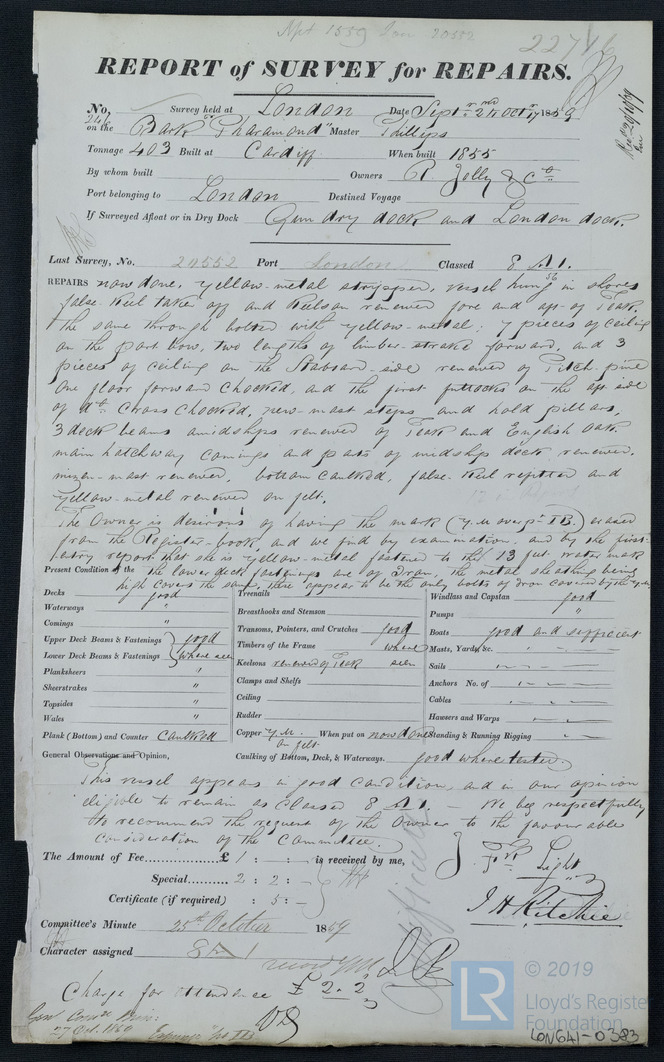 22716
REPORT of SURVEY for REPAIRS.
No. 246 Survey held at London Date Sept.r 2nd to Oct.r 1859
on the Bark "Pharamond" Master Phillips
Tonnage 403 Built at Cardiff When built 1855
By whom built Owners R. Jolly & Co
Port belonging to London Destined Voyage
If Surveyed Afloat or in Dry Dock Gun dry dock and London dock.
Last Survey, No. 20552 Port London Classed 8 A 1.
56
REPAIRS now done, yellow-metal stripped, vessel hung in shores
false-keel taken off and Keelson renewed fore and aft of Teak,
the same through bolted with yellow-metal; 7 pieces of ceiling
on the port bow, two lengths of limber-strake forward, and 3
pieces of ceiling on the Starboard-side renewed of Pitch-pine
One floor forward chocked, and the first futtocks on the aft side
of do Cross Chocked, new-mast steps and hold pillars,
3 deck beams amidships renewed of Teak and English Oak
main hatchway comings and parts of midship deck renewed,
mizen-mast renewed, bottom caulked, false-keel refitted and
yellow-metal renewed on felt.
The Owner is desirous of having the mark (y.m over pt IB.) erased
from the Register-book, and we find by examination, and by the first-
entry report that she is yellow-metal fastened to the 13 feet water mark
Present Condition of the the lower deck fastenings are of Iron, the metal sheathing being
high covers the same, these appear to be the only bolts of Iron covered by the y.m.
Decks good
Waterways "
Comings "
Upper Deck Beams & Fastenings good
Lower Deck Beams & Fastenings where seen
Planksheers "
Sheerstrakes "
Topsides "
Wales "
Plank (Bottom) and Counter Caulked
Treenails
Breasthooks and Stemson
Transoms, Pointers, and Crutches good
Timbers of the Frame where
Keelsons renewed of Teak seen
Clamps and Shelfs
Ceiling
Rudder
Copper y.m. on felt When put on now done
Caulking of Bottom, Deck, & Waterways. good where tested.
Windlass and Capstan good
Pumps "
Boats good and sufficient
Masts, Yards, &c.
Sails
Anchors No. of
Cables
Hawsers and Warps
Standing & Running Rigging
General Observations and Opinion,
This vessel appears in good condition, and in our opinion
eligible to remain as classed 8 A 1. — We beg respectfully
to recommend the request of the Owner to the favourable
consideration of the Committee.
The Amount of Fee £ 1 : - : - is received by me,
Special 2 : 2 : -
Certificate (if required) : 5 : -
Light
J H Ritchie
Committee's Minute 25th October 1859
Character assigned 8 A 1
Charge for attendance £ 2 . 2
© 2019
LR
Lloyd's Register
Foundation
LON641-0383